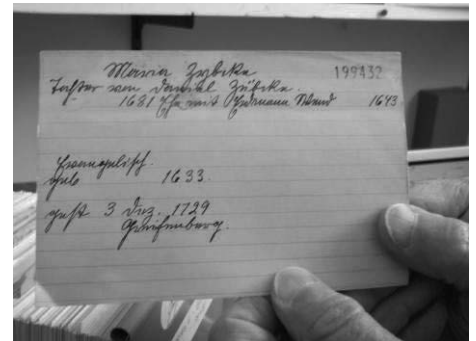 Maria Zybcke 199432
Tochter von Daniel Zübcke.
1681 Ehe mit Hermann Wend 1643
Evangelisch.
geb 1633.
gest 3 Dez. 1729
Greifenberg.